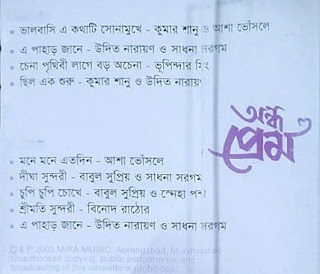 • ভালবাসি এ কথাটি সোনামুখে - কুমার শানু ও আশা ভোঁসলে
• এ পাহাড় জানে - উদিত নারায়ণ ও সাধনা সরগম
• চেনা পৃথিবী লাগে বড় অচেনা - ভূপিন্দার সিং
• ছিল এক শুরু - কুমার শানু ও উদিত নারায়ণ
অন্ধ
প্রেম
• মনে মনে এতদিন - আশা ভোঁসলে
• দীঘা সুন্দরী - বাবুল সুপ্রিয় ও সাধনা সরগম
• চুপি চুপি চোখে - বাবুল সুপ্রিয় ও স্নেহা পন্থ
• শ্রীমতি সুন্দরী - বিনোদ রাঠোর
• এ পাহাড় জানে - উদিত নারায়ণ ও সাধনা সরগম
© & P 2003 MIRA MUSIC, Aurangabad, Murshidabad
Unauthorised copying, public performance and
broadcasting of this cassette is prohibited.